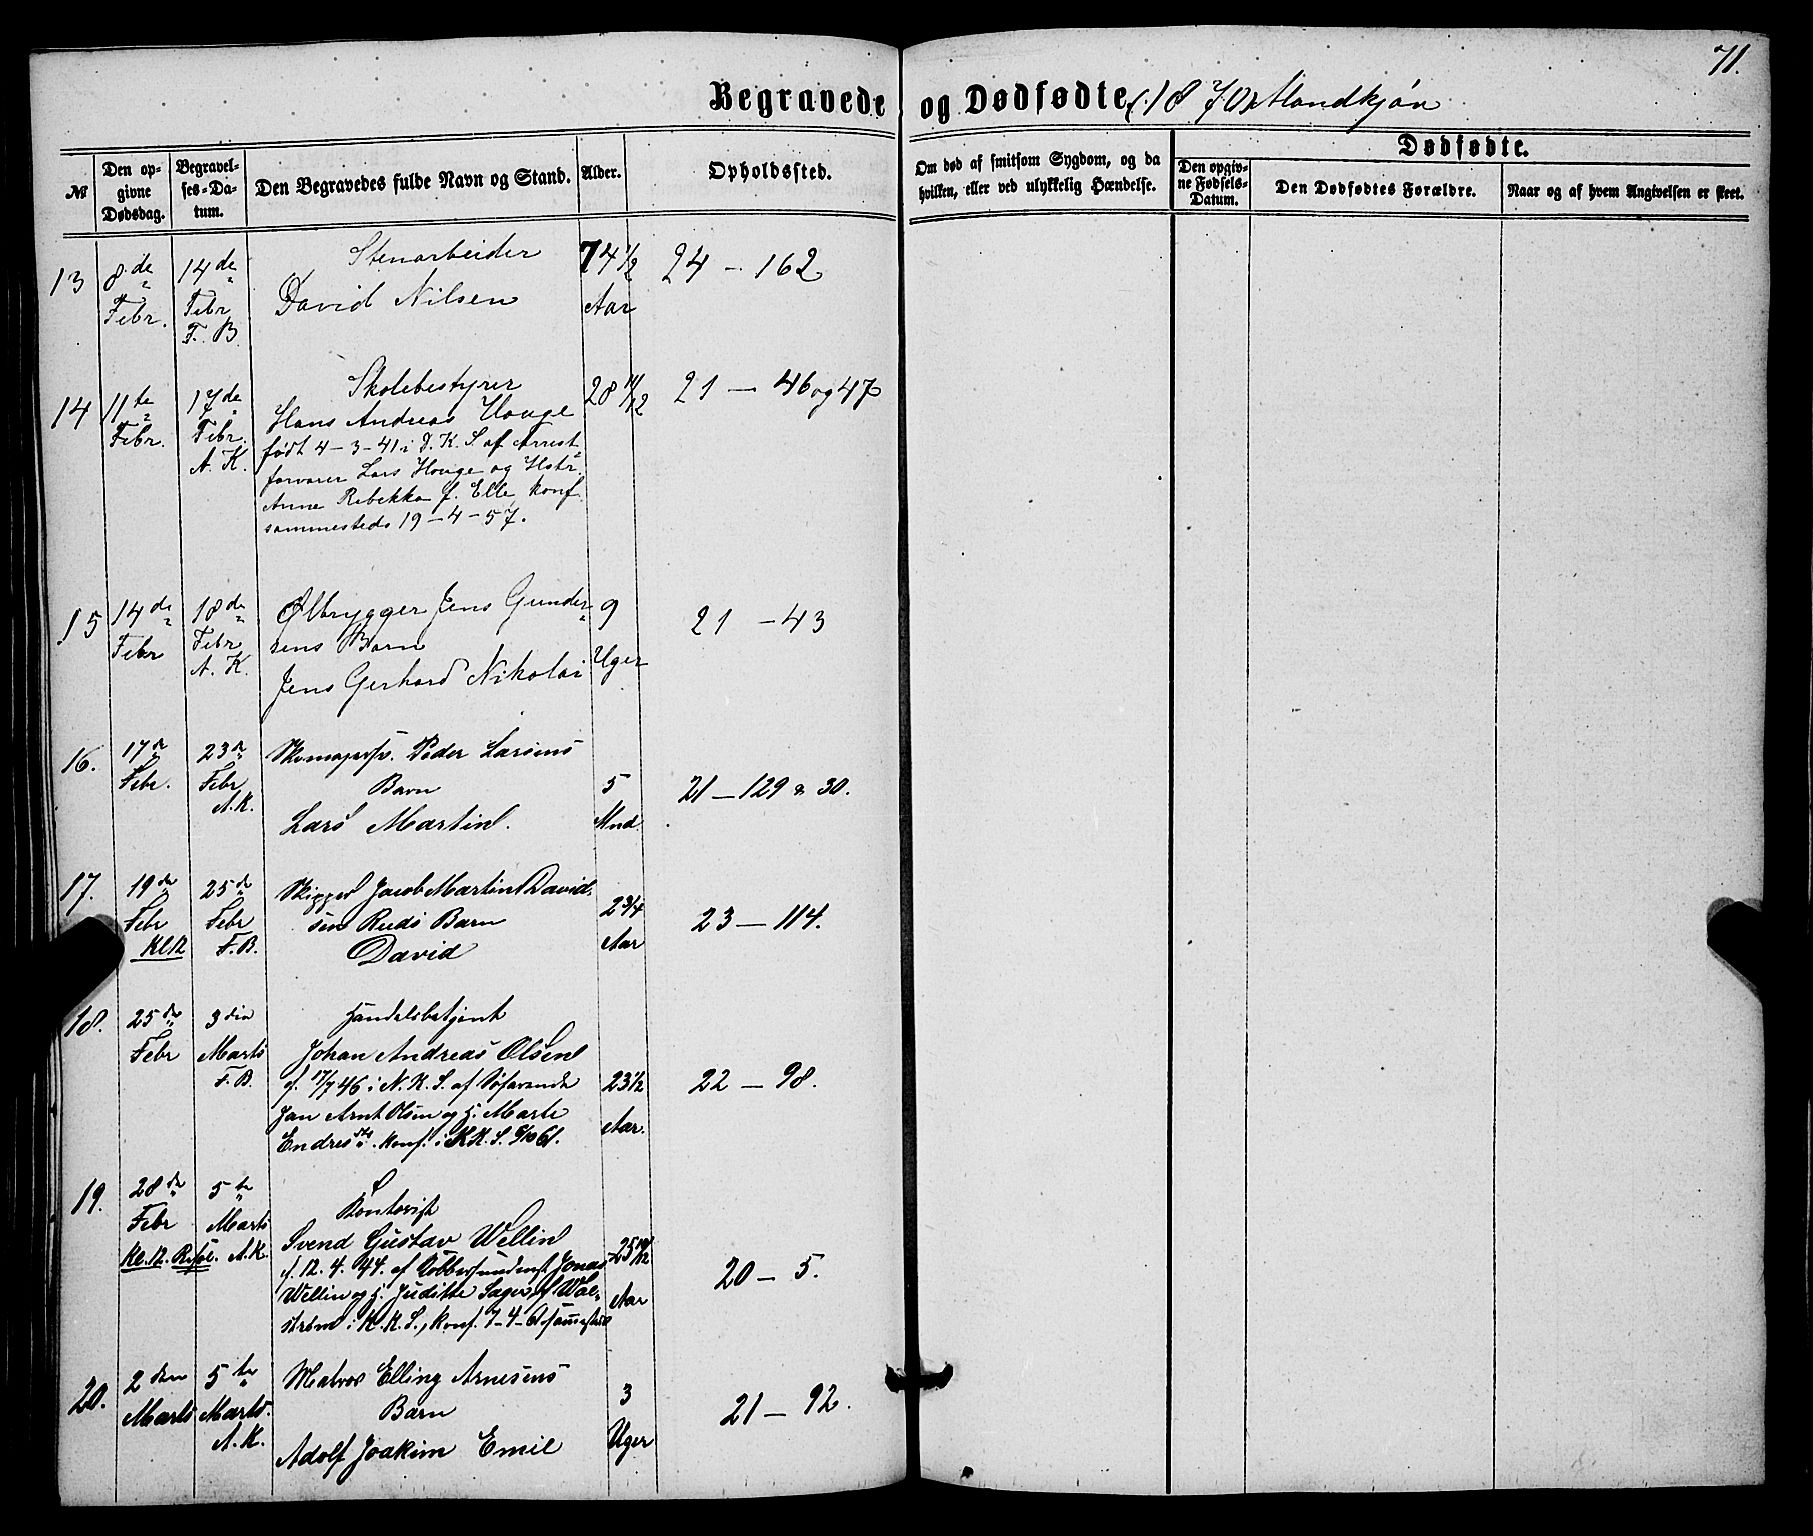 71.
Begravede og Dødfødte, (1870) Mandkjøn
№
Den opgivne Dødsdag.
Begravelses-Datum.
Den Begravedes fulde Navn og Stand.
Alder.
Opholdssted.
Om død af smitsom Sygdom, og da hvilken, eller ved ulykkelig Hændelse.
Dødfødte.
Den opgivne Fødsels-Datum.
Den Dødfødtes Forældre.
Naar og af hvem Angivelsen er skeet.
13 8de Febr. 14de Febr F. B.
Stenarbeider
David Nilsen
74 1/2 Aar
24 – 162
14 11te Febr. 17de Febr. A. K.
Skolebestyrer
Hans Andreas Houge
født 4–3–41 i D. K. S. af Arrest-
forvarer Lars Houge og Hstr.
Anne Rebekka f. Elle, konf.
sammesteds 19–4–57.
28 11/12
21 – 46 og 47
15 14de Febr 18de Febr A. K.
Ølbrygger Jens Gunder-
sens Barn
Jens Gerhard Nikolai
9 Uger
21 – 43
16. 17de Febr. 23de Febr A.K.
Peder Larsens
Barn
Lars Martin.
5 Mnd.
21 – 129 & 30.
17. 19de Febr Kl. 12 25de Febr F.B.
Skipper Jacob Martin David-
sen Ruds Barn
David
2 3/4 Aar
23 – 114.
18. 25de Febr 3die Marts F.B.
Handelsbetjent
Johan Andreas Olsen
f. 17/7 46 i N. K. S. af Søfarende
Jan Arnt Olsen og H. Marte
Endresdtr. konf. i K.K. S. 6/10 61.
23 1/2 Aar.
22 – 98.
19. 28de Febr Kl. 12. 5te Marts A.K.
Kontorist
Svend Gustav Wellin
f. 12. 4. 44. af Kobbersmedmst. Jonas
Wellin og H. Juditte f. Wal-
strøm i K. K. S., konf. 7–4–61 sammesteds
25 10/12 Aar
20 – 5.
20. 2den Marts 5te Marts. A.K.
Matros Elling Arnesens
Barn
Adolf Joakim Emil
3 Uger
21 – 92.